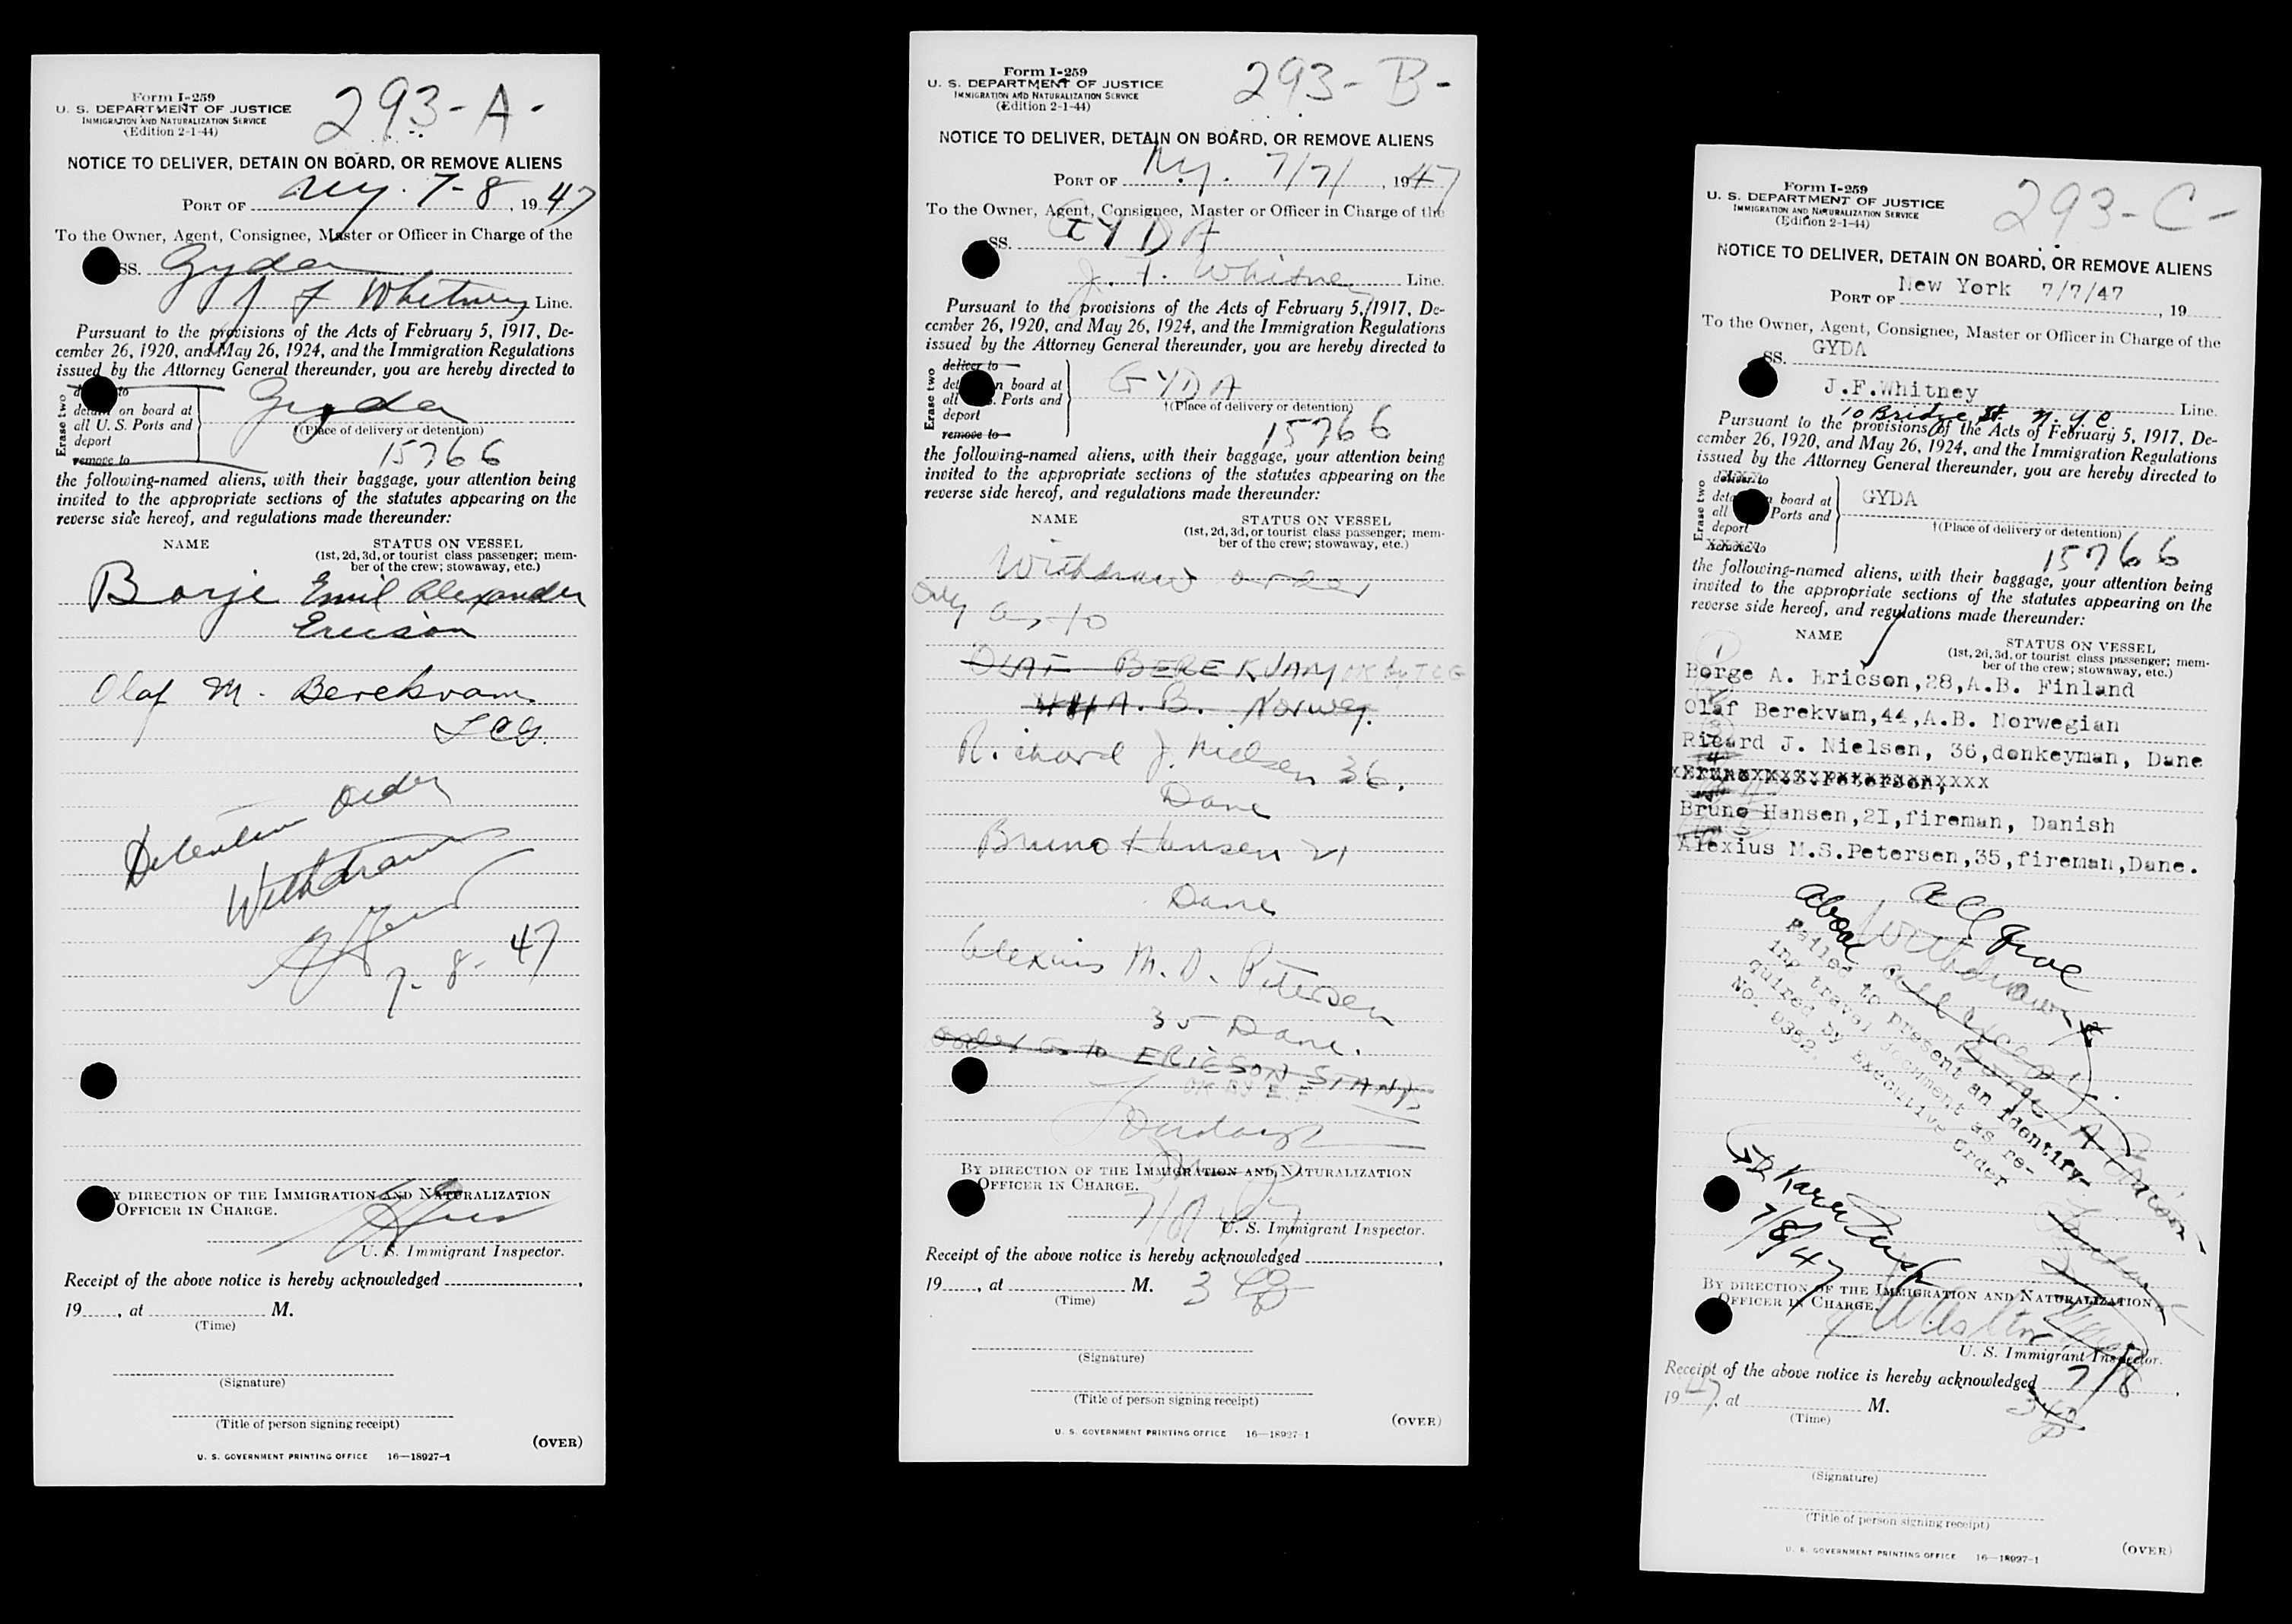 Form I-259
U. S. DEPARTMENT OF JUSTICE
IMMIGRATION AND NATURALIZATION SERVICE
(Edition 2-1-44)
293-A-
NOTICE TO DELIVER, DETAIN ON BOARD, OR REMOVE ALIENS
PORT OF N.Y. 7-8, 1947
To the Owner, Agent, Consignee, Master or Officer in Charge of the
SS. Gyda
J F Whitney Line.
Pursuant to the provisions of the Acts of February 5, 1917, De-
cember 26, 1920, and May 26, 1924, and the Immigration Regulations
issued by the Attorney General thereunder, you are hereby directed to
Erase two
to
detain on board at
all U. S. Ports and
deport
remove to
Gyda
†(Place of delivery or detention)
15766
the following-named aliens, with their baggage, your attention being
invited to the appropriate sections of the statutes appearing on the
reverse side hereof, and regulations made thereunder:
NAME STATUS ON VESSEL
(1st, 2d, 3d, or tourist class passenger; mem-
ber of the crew; stowaway, etc.)
Borje Emil Alexander
Ericson
Olaf M. Berekvam
Detention order
Withdrawn
7-8-47
BY DIRECTION OF THE IMMIGRATION AND NATURALIZATION
OFFICER IN CHARGE.
U. S. Immigrant Inspector.
Receipt of the above notice is hereby acknowledged
19, at M.
(Time)
(Signature)
(Title of person signing receipt)
(OVER)
U. S. GOVERNMENT PRINTING OFFICE 16—18927-1
Form I-259
U. S. DEPARTMENT OF JUSTICE
IMMIGRATION AND NATURALIZATION SERVICE
(Edition 2-1-44)
293-B-
NOTICE TO DELIVER, DETAIN ON BOARD, OR REMOVE ALIENS
PORT OF N.Y. 7/7/, 1947
To the Owner, Agent, Consignee, Master or Officer in Charge of the
SS. GYDA
J. F. Whitney Line.
Pursuant to the provisions of the Acts of February 5, 1917, De-
cember 26, 1920, and May 26, 1924, and the Immigration Regulations
issued by the Attorney General thereunder, you are hereby directed to
Erase two
deliver to
n board at
all Ports and
deport
remove to
GYDA
†(Place of delivery or detention)
15766
the following-named aliens, with their baggage, your attention being
invited to the appropriate sections of the statutes appearing on the
reverse side hereof, and regulations made thereunder:
NAME STATUS ON VESSEL
(1st, 2d, 3d, or tourist class passenger; mem-
ber of the crew; stowaway, etc.)
Withdraw order
only as to
OLAF BEREKVAM OK by
A. B. Norweg.
Richard J. Nielsen 36.
Dane
Bruno Hansen 21
Dane
Alexius M. S. Petersen
35 Dane.
order as to ERICSON STANDS
OK BY
BY DIRECTION OF THE IMMIGRATION AND NATURALIZATION
OFFICER IN CHARGE.
U. S. Immigrant Inspector.
Receipt of the above notice is hereby acknowledged
19, at M. 3
(Time)
(Signature)
(Title of person signing receipt)
(OVER)
U. S. GOVERNMENT PRINTING OFFICE 16—18927-1
Form I-259
U. S. DEPARTMENT OF JUSTICE
IMMIGRATION AND NATURALIZATION SERVICE
(Edition 2-1-44)
293-C-
NOTICE TO DELIVER, DETAIN ON BOARD, OR REMOVE ALIENS
PORT OF New York 7/7/47, 19
To the Owner, Agent, Consignee, Master or Officer in Charge of the
SS. GYDA
J.F.Whitney Line.
10 Bridge St. N.Y.C.
Pursuant to the provisions of the Acts of February 5, 1917, De-
cember 26, 1920, and May 26, 1924, and the Immigration Regulations
issued by the Attorney General thereunder, you are hereby directed to
Erase two
deliver to
board at
all Ports and
deport
remove to
GYDA
†(Place of delivery or detention)
15766
the following-named aliens, with their baggage, your attention being
invited to the appropriate sections of the statutes appearing on the
reverse side hereof, and regulations made thereunder:
NAME STATUS ON VESSEL
(1st, 2d, 3d, or tourist class passenger; mem-
ber of the crew; stowaway, etc.)
Borge A. Ericson,28,A.B. Finland
Olaf Berekvam,44,A.B. Norwegian
Ricard J. Nielsen, 36,donkeyman, Dane
Bruno Hansen,2I,fireman, Danish
Alexius M.S.Petersen,35,fireman,Dane.
above
Withdrawn
all except
Borge A Ericson
Failed to present an identify-
ing travel document as re-
quired by Executive Order
No. 9352.
7/8/47
BY DIRECTION OF THE IMMIGRATION AND NATURALIZATION
OFFICER IN CHARGE.
U. S. Immigrant Inspector.
Receipt of the above notice is hereby acknowledged 7/8
1947, at M. 3
(Time)
(Signature)
(Title of person signing receipt)
(OVER)
U. S. GOVERNMENT PRINTING OFFICE 16—18927-1